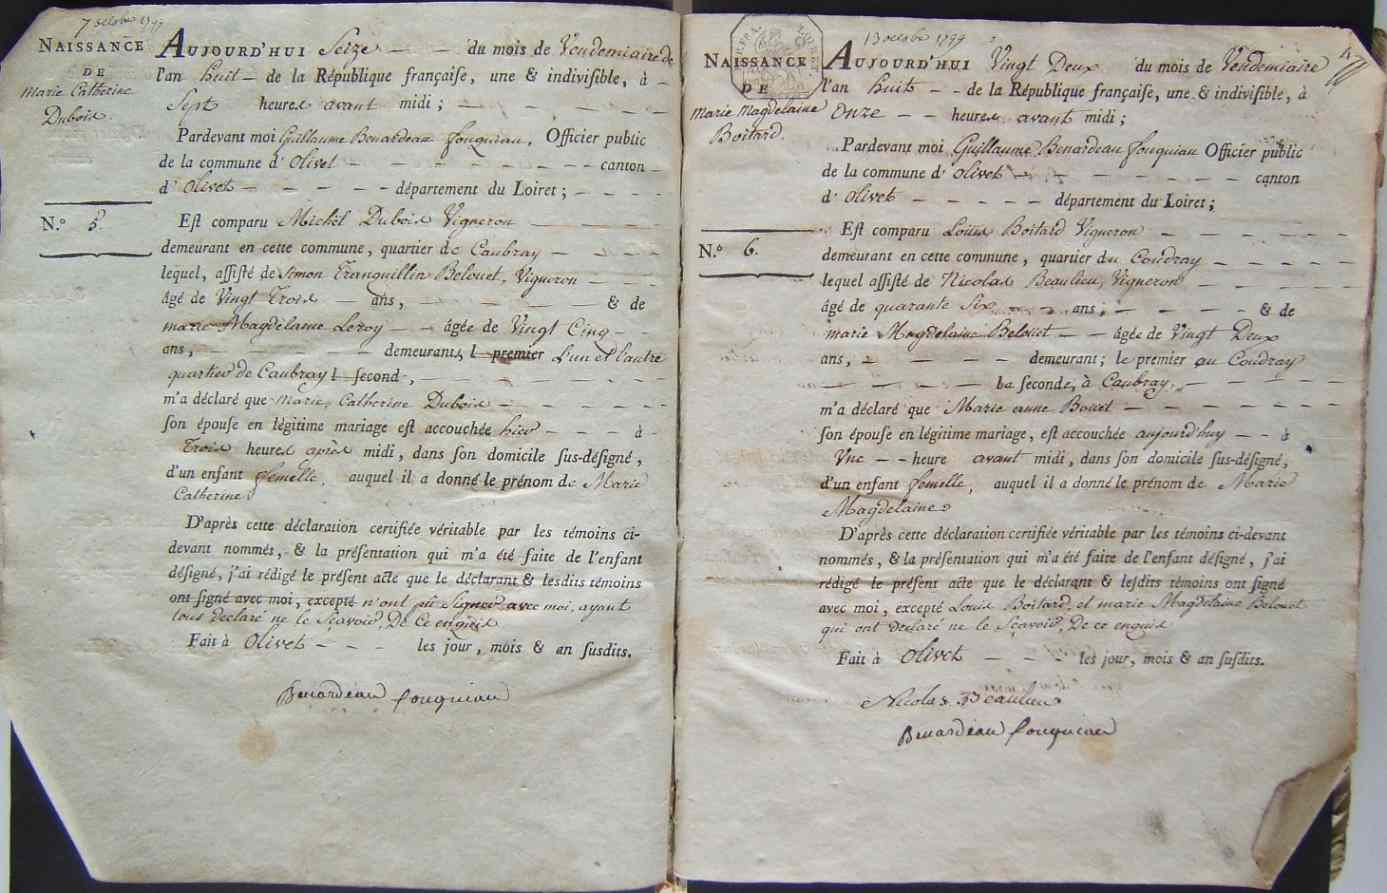 7 octobre 1799
NAISSANCE
DE
Marie Catherine
Dubois.
N.º 5.
AUJOURD'HUI Seize — du mois de Vendemiaire de
l'an huit — de la République françaiſe, une & indiviſible, à —
Sept heures avant midi ; — — — —
Pardevant moi Guillaume Benardeau fouquiau, Officier public
de la commune d' Olivet — — — — — — canton —
d' Olivet — — — — département du Loiret ; — — —
Eſt comparu Michel Dubois Vigneron — — —
demeurant en cette commune, quartier de Caubray — — — —
lequel, aſſiſté de Simon Tranquillin Belouet, Vigneron — — —
âgé de Vingt Trois — ans, — — — — & de
marie Magdelaine Leroy — — âgée de Vingt Cinq — —
ans, — — — — demeurants, l premier L'un et l'autre
quartier de Caubray l ſecond, — — — — — —
m'a déclaré que Marie, Catherine Dubois — — — — —
ſon épouſe en légitime mariage eſt accouchée hier — — — à —
Trois heures après midi, dans ſon domicile ſus-déſigné,
d'un enfant femelle, auquel il a donné le prénom de Marie
Catherine.
D'après cette déclaration certifiée véritable par les témoins ci-
devant nommés, & la préſentation qui m'a été faite de l'enfant
déſigné, j'ai rédigé le préſent acte que le déclarant & leſdits témoins
ont ſigné avec moi, excepté n'ont pû Signer avec moi, ayant
tous declaré ne le Sçavoir, De Ce enquis
Fait à Olivet — — — les jour, mois & an ſuſdits.
Benardeau fouquiau
13 octobre 1799
NAISSANCE
DE
Marie Magdelaine
Boitard.
N.º 6.
AUJOURD'HUI Vingt Deux du mois de Vendemiaire
l'an huit — — de la République françaiſe, une & indiviſible, à
Onze — — heures avant midi ;
Pardevant moi Guillaume Benardeau fouquiau Officier public
de la commune d' Olivet — — — — — — canton
d' Olivet — — — — — département du Loiret ;
Eſt comparu Louis Boitard Vigneron — — — — —
demeurant en cette commune, quartier du Coudray — — — — —
lequel aſſiſté de Nicolas Beaulieu, Vigneron — — — — —
âgé de quarante Six — — ans ; — — — — & de
marie Magdelaine Belouet — — âgée de Vingt Deux
ans, — — — — — demeurant ; le premier au Coudray
— — — — — La ſeconde, à Caubray, — — — —
m'a déclaré que Marie anne Bouet — — — — — —
ſon épouſe en légitime mariage, eſt accouchée aujourd'huy — — à
Une — — heure avant midi, dans ſon domicile ſus-déſigné,
d'un enfant femelle, auquel il a donné le prénom de Marie
Magdelaine
D'après cette déclaration certifiée véritable par les témoins ci-devant
nommés, & la préſentation qui m'a été faite de l'enfant déſigné, j'ai
rédigé le préſent acte que le déclarant & leſdits témoins ont ſigné
avec moi, excepté Louis Boitard, et marie Magdelaine Belouet
qui ont declaré ne le Sçavoir, De ce enquis
Fait à Olivet — — — les jour, mois & an ſuſdits.
Nicolas Beaulieu
Benardeau fouquiau